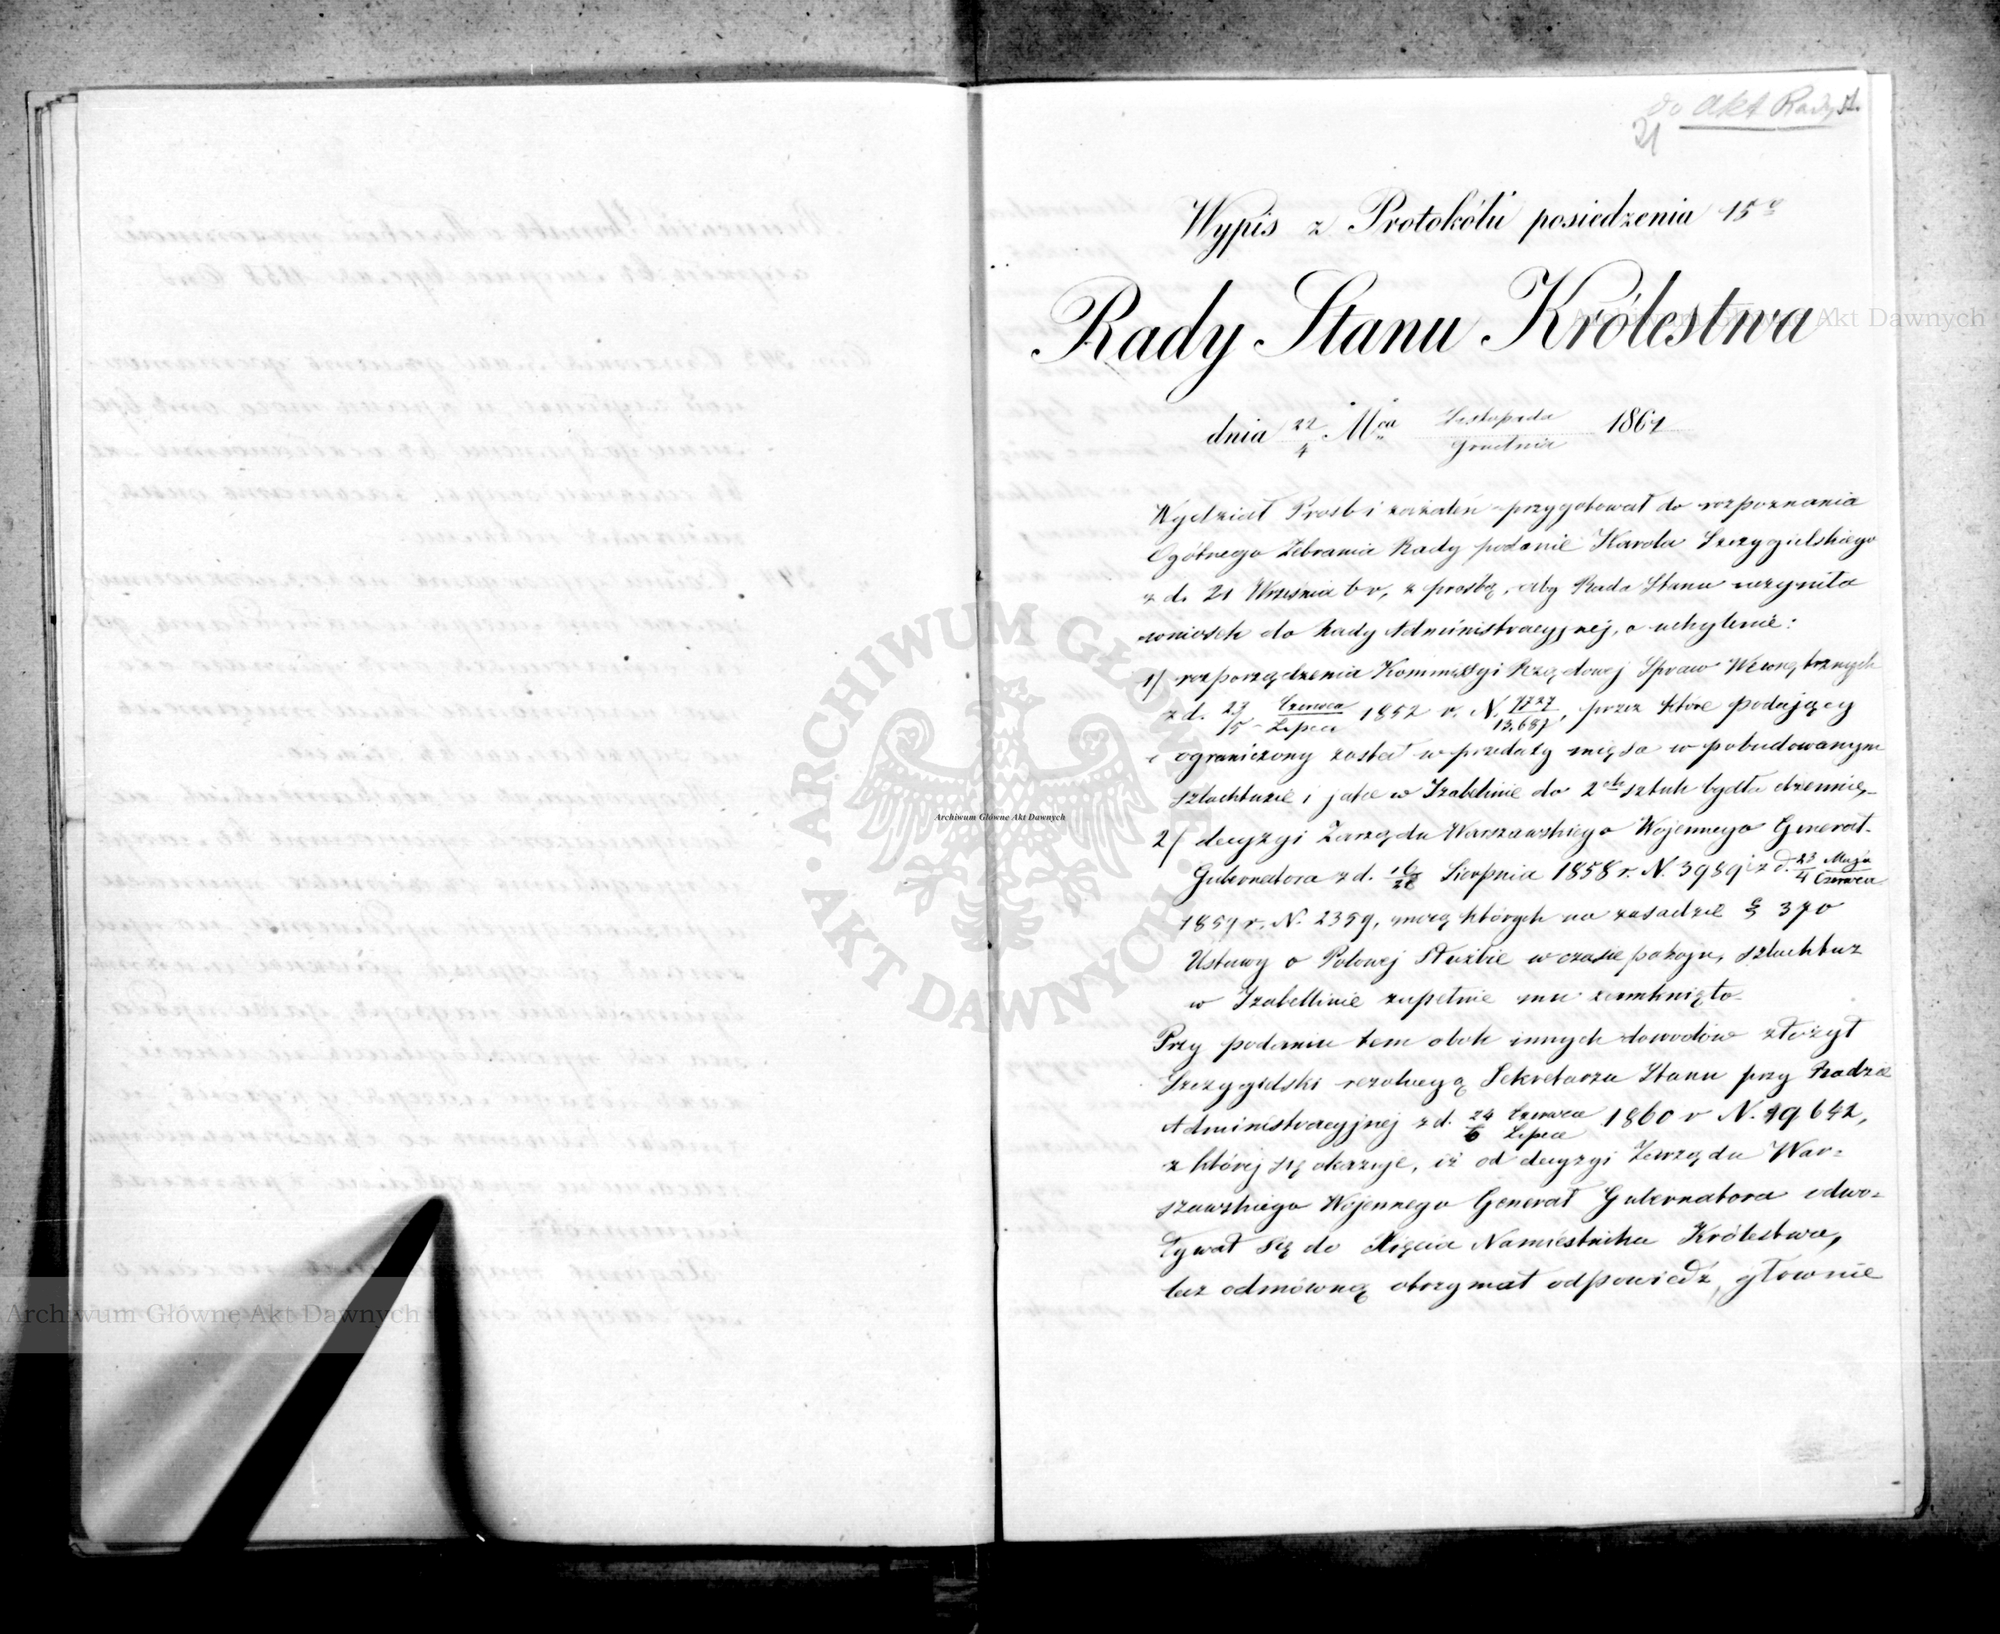 do Akt Rady St.
21
Wypis z Protokółu posiedzenia 15º
Rady Stanu Królestwa
dnia 22/4 Mca Listopada/Grudnia 1861
Wydział Prośb i zażaleń przygotował do rozpoznania
Ogólnego Zebrania Rady podanie Karola Szczygielskiego
z d. 21 Września b.r, z prośbą, aby Rada Stanu uczyniła
wniosek do Rady Administracyjnej, o uchylenie:
1/ rozporządzenia Kommissyi Rządowej Spraw Wewnętrznych
z d. Czerwca/Lipca 1852 r. N. przez które podający
ograniczony został w przedaży mięsa w pobudowanym
szlachtuzie i jatce w Izabelinie do 2ch sztuk bydła dziennie,
2/ decyzyi Zarządu Warszawskiego Wojennego Generał-
Gubernatora z d. 16/28 Sierpnia 1858 r. N. 3989 i z d. 23/4 Maja/Czerwca
1859 r. N. 2359, mocą których na zasadzie § 370
Ustawy o Polowej Służbie w czasie pokoju, szlachtuz
w Izabellinie zupełnie mu zamknięto.
Przy podaniu tem obok innych dowodów złożył
Szczygielski rezolucyą Sekretarza Stanu przy Radzie
Administracyjnej z d. 24/6 Czerwca/Lipca 1860 r N. 19642,
z której się okazuje, iż od decyzyi Zarządu War-
szawskiego Wojennego Generał Gubernatora odwo-
ływał się do Xięcia Namiestnika Królestwa,
lecz odmówną otrzymał odpowiedź, głownie
ARCHIWUM GŁÓWNE AKT DAWNYCH
Archiwum Główne Akt Dawnych
Archiwum Główne Akt Dawnych
Archiwum Główne Akt Dawnych